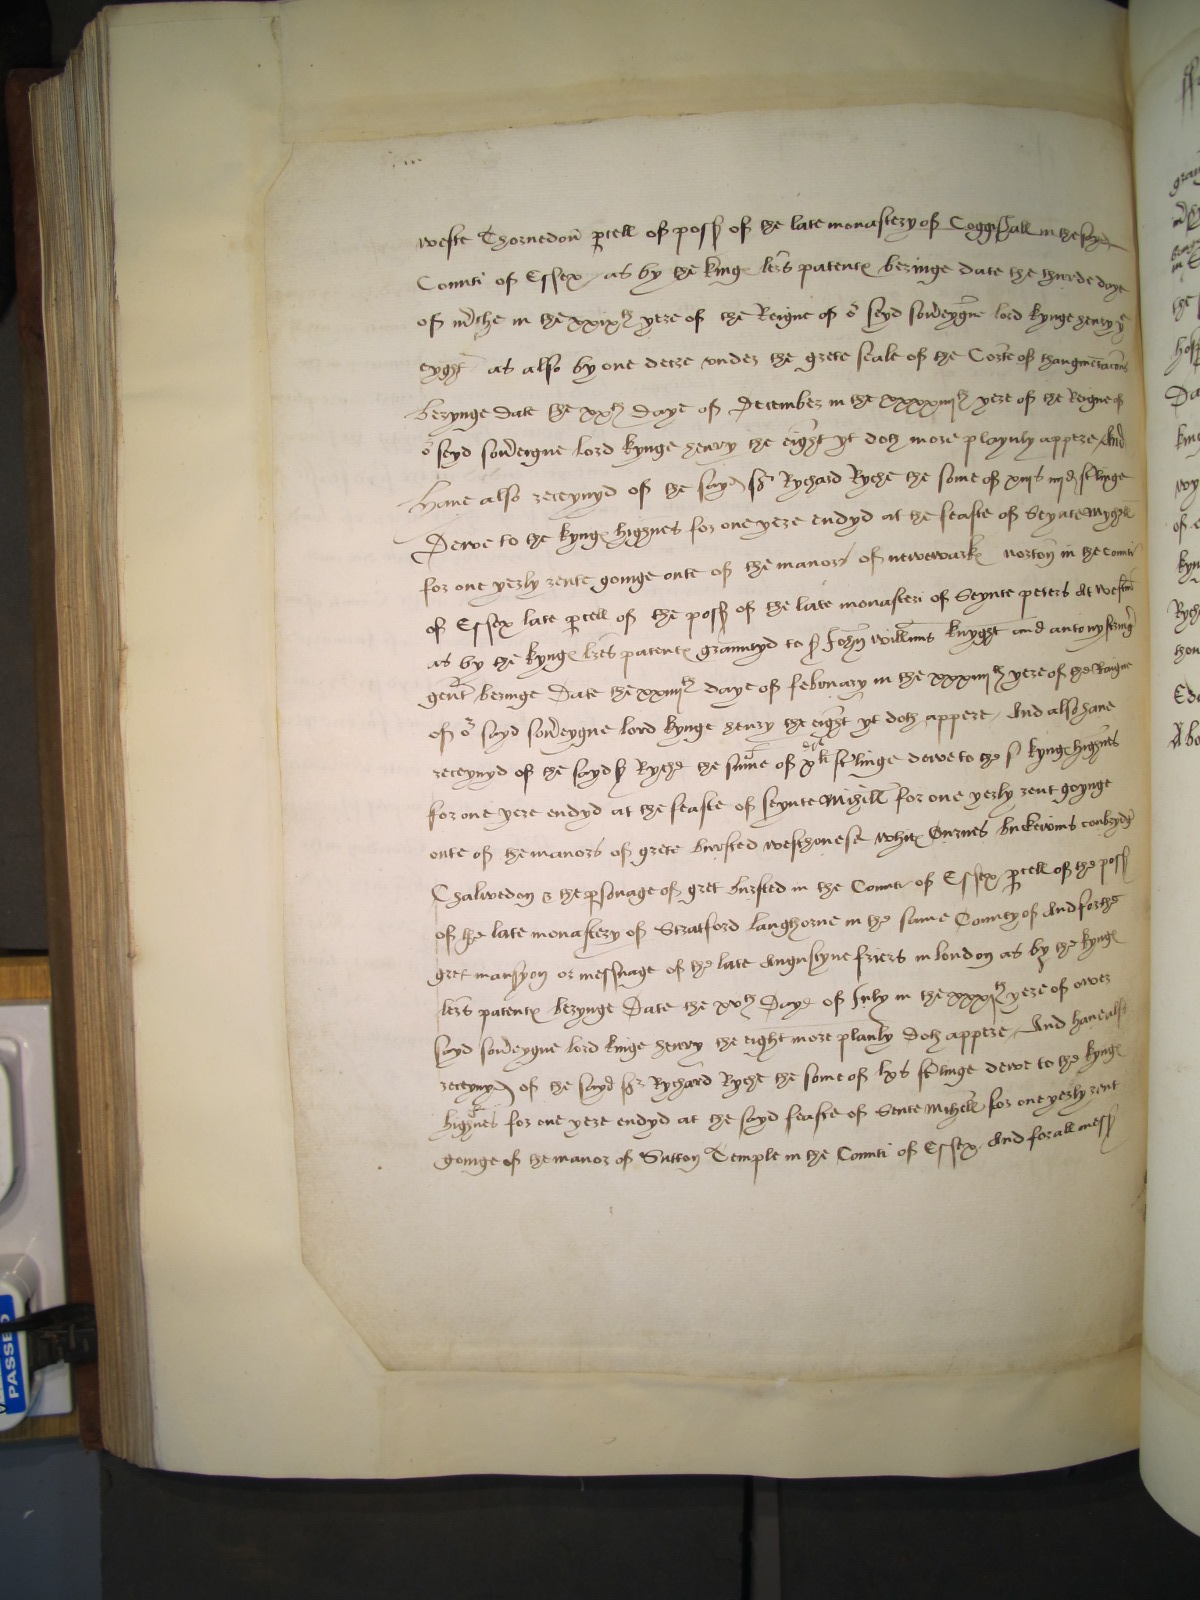 weste Thornedon pcell of poss of the late monastery of Coggeshall in the seyd
Counti of Essex as by the kinge lres patente beringe date the thirde daye
of m̃che in the xxixth yere of the Reigne of oʳ seyd soũeygne lord kynge henry yͤ
eyght as also by one decre vnder the grete seale of the Corte of thaugmẽtacõns
berynge date the xxth daye of December in the xxxxiiijth yere of the Reigne of
oʳ seyd soũeigne lord kynge henry the eight yt doth more playnly appere And
Haue also receynyd of the sayd Sr Rychard Ryche the some of xiijs iiijd strlinge
Dewe to the kynge highnes for one yere endyd at the feaste of Seynte Myghell
for one yerly rente goinge oute of the manors of newewarke norton in the counti
of Essex late pcell of the poss of the late monasteri of Seynte peters At Westm
as by the kynge lres patente grauntyd to s John Willms knyght and antony stringr
gent beringe Date the xxiiijth daye of february in the xxxiiijth yere of the Raigne
of oʳ sayd soũeygne lord kynge henry the eight yt doth appere And also haue
receynyd of the sayd s Ryche the sume of xli strlinge dewe to the s kynge highnes
for one yere endyd at the feaste of seynte Mihill for one yerly rent goynge
oute of the manors of grete bursted westhouese white Gurnes buckewins
Chalwedon & the psonage of gret bursted in the Counti of Essex pcell of the poss
of the late monastery of Stratford langthorne in the same County of And for the
gret mansyon or messuage of the late Augustyne friers in london as by the kynge
lres patente berynge Date the xvth Daye of July in the yere of ower
sayd soũeygne lord kinge henry the eight more planly doth appere And haue also
receynyd of the sayd Sr Rychard Ryche the some of lxs strlinge dewe to the kynge
highnes for one yere endyd at the sayd feaste of Sente Mihell for one yerly rent
goinge of the manor of Sutton Temple in the Counti of Essex And for all mess